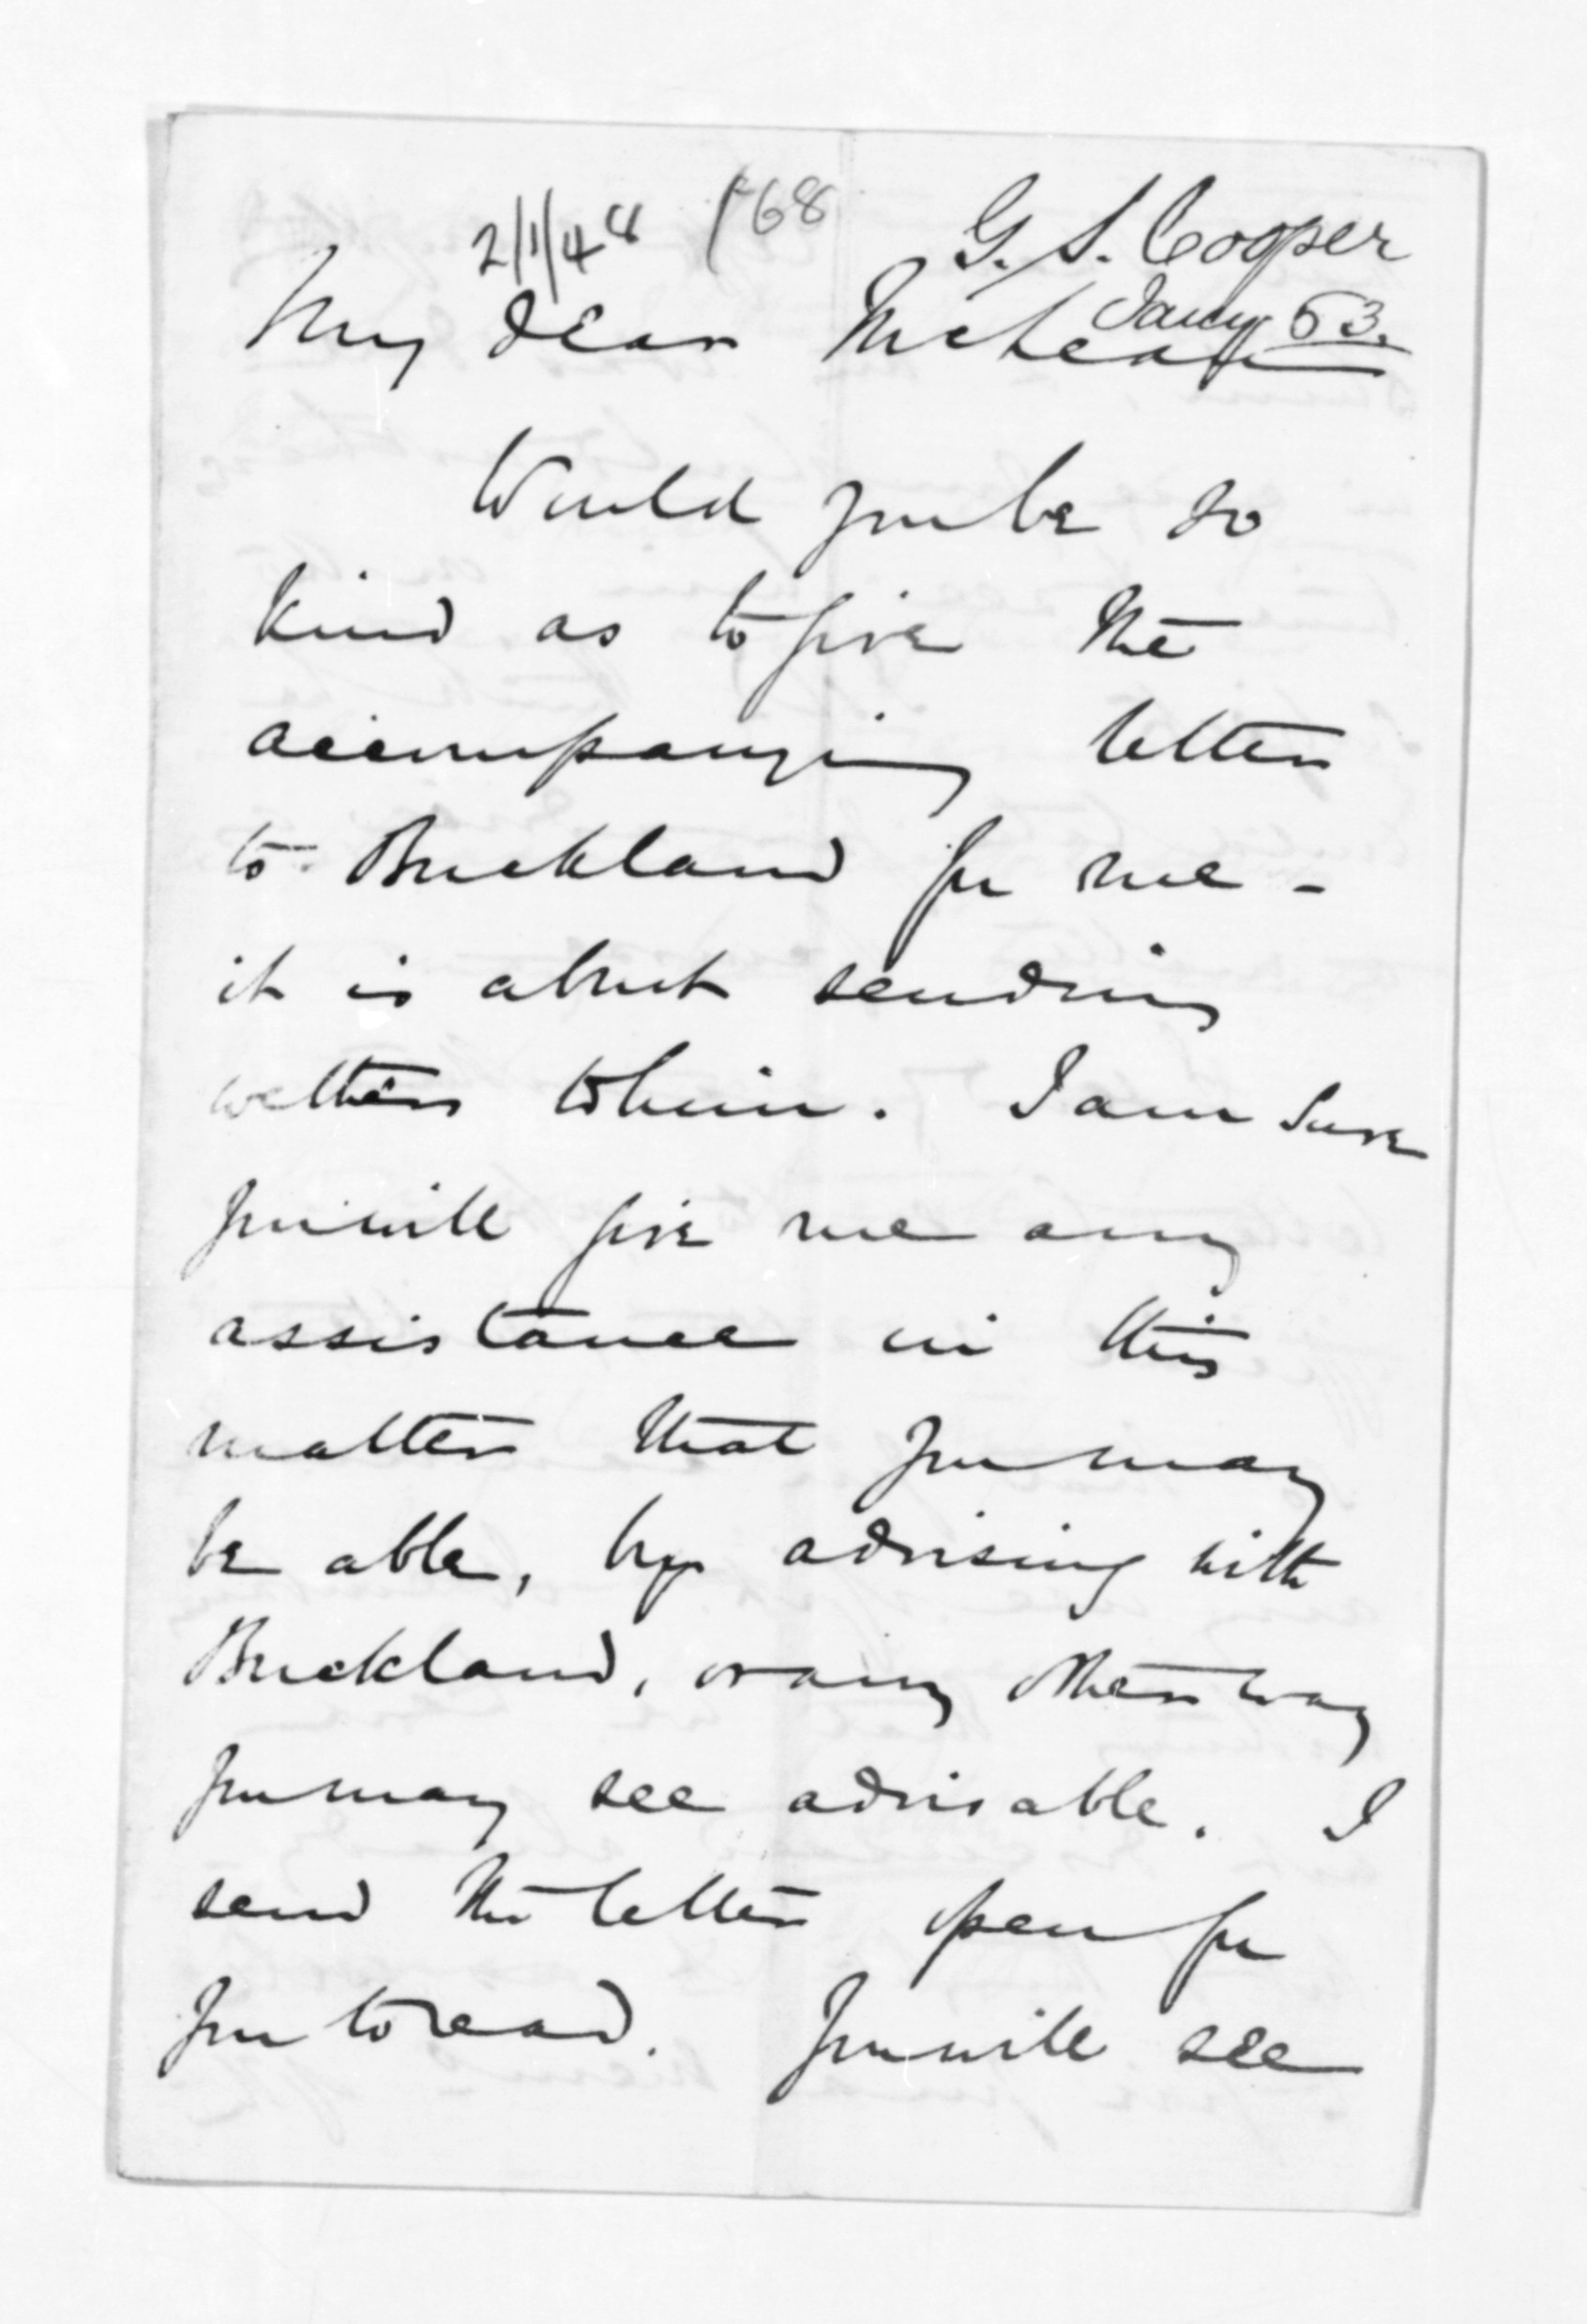 2/1/48 168 G. S. Cooper
Jany 63.
My dear McLean
Would you be so
kind as to give the
accompanying letter
to Buckland for me -
it is about sending
wethers to him. I am sure
you will give me any
assistance in this
matter that you may
be able, by advising with
Buckland, or any other way
you may see advisable. I
send the letter open for
you to read. You will see